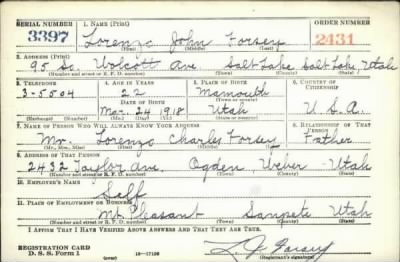 SERIAL NUMBER 1. NAME (Print) ORDER NUMBER
3397 Lorenzo John Forsey 2431
(First) (Middle) (Last)
2. ADDRESS (Print)
95 So. Wolcott Ave. Salt Lake Salt Lake Utah
(Number and street or R. F. D. number) (Town) (County) (State)
3. TELEPHONE 4. AGE IN YEARS 5. PLACE OF BIRTH 6. COUNTRY OF CITIZENSHIP
3-5504 22 Mamouth
DATE OF BIRTH (Town or county)
Mar. 24 1918 Utah U. S. A.
(Exchange) (Number) (Mo.) (Day) (Yr.) (State or country)
7. NAME OF PERSON WHO WILL ALWAYS KNOW YOUR ADDRESS 8. RELATIONSHIP OF THAT PERSON
Mr. Lorenzo Charles Forsey Father
(Mr., Mrs., Miss) (First) (Middle) (Last)
9. ADDRESS OF THAT PERSON
2432 Taylor Ave. Ogden Weber Utah
(Number and street or R. F. D. number) (Town) (County) (State)
10. EMPLOYER'S NAME
Self
11. PLACE OF EMPLOYMENT OR BUSINESS
Mt. Pleasant Sanpete Utah
(Number and street or R. F. D. number) (Town) (County) (State)
I AFFIRM THAT I HAVE VERIFIED ABOVE ANSWERS AND THAT THEY ARE TRUE.
REGISTRATION CARD
D. S. S. Form 1 16—17105 (Registrant's signature)